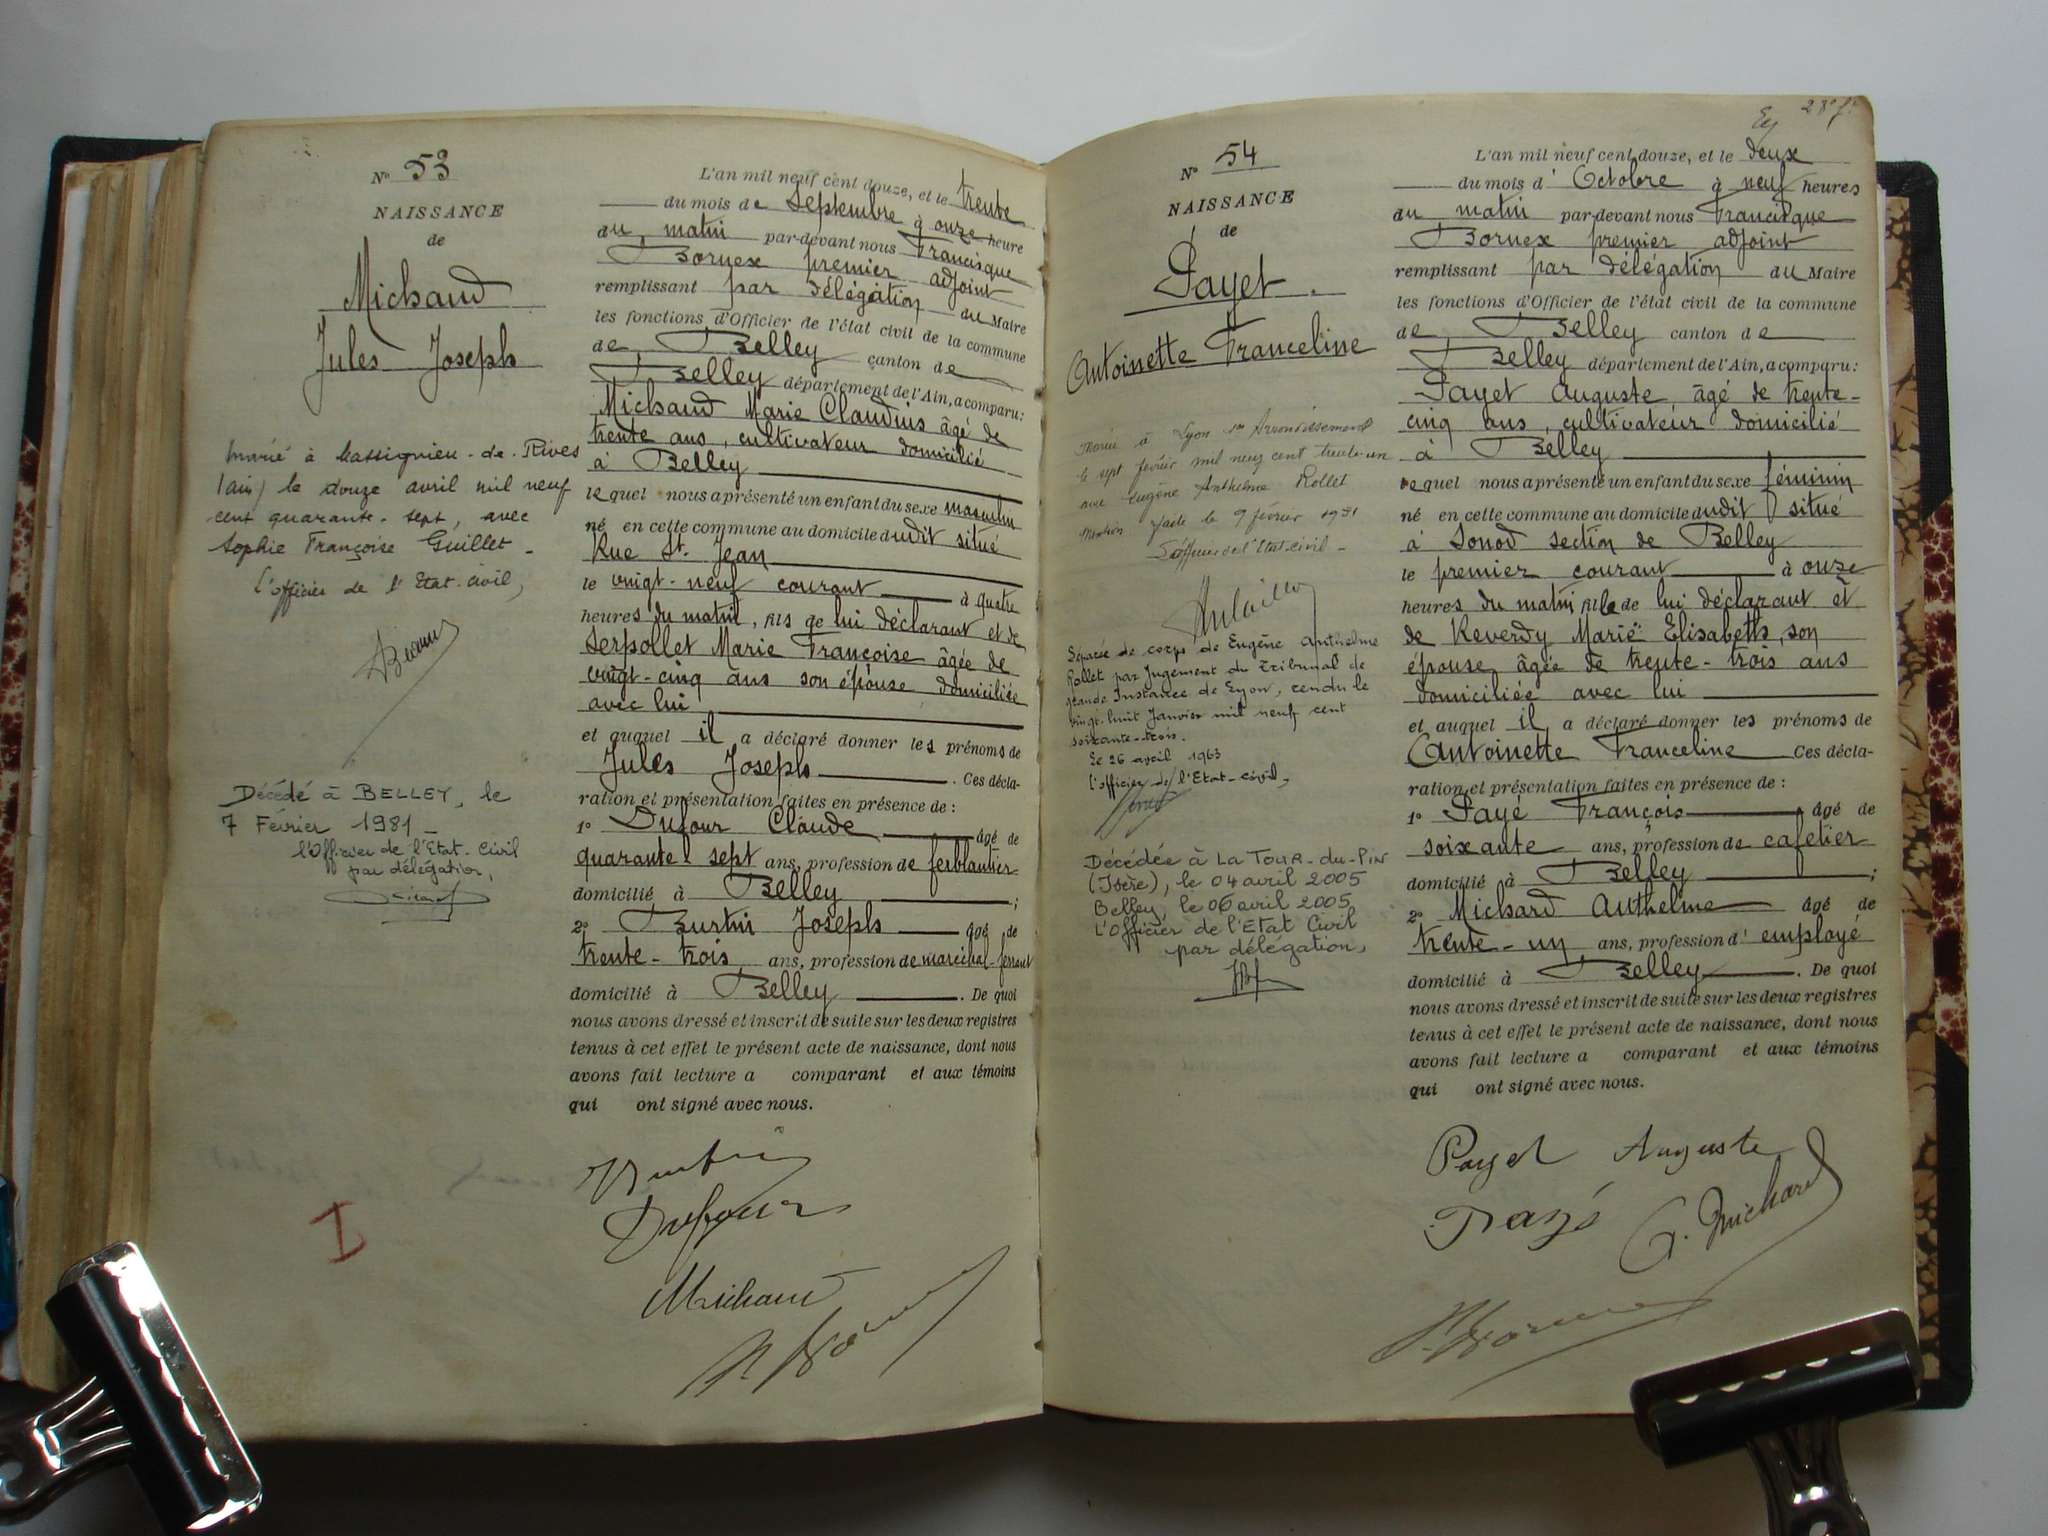 N° 53
NAISSANCE
de
Michaud
Jules Joseph
Marié à Massignieu-de-Rives
(Ain) le douze avril mil neuf
cent quarante-sept, avec
Sophie Françoise Guillet -
L'officier de l'Etat-civil,
Décédé à BELLEY, le
7 Février 1981 -
l'Officier de l'Etat-Civil
par délégation,
I
L'an mil neuf cent douze, et le trente
du mois de Septembre à onze heure
du matin par-devant nous Francisque
Bornex premier adjoint
remplissant par délégation du Maire
les fonctions d'Officier de l'état civil de la commune
de Belley canton de
Belley département de l'Ain, a comparu:
Michaud Marie Claudius âgé de
trente ans, cultivateur domicilié
à Belley
lequel nous a présenté un enfant du sexe masculin
né en cette commune au domicile dudit situé
Rue St. Jean
le vingt-neuf courant à quatre
heures du matin, fils de lui déclarant et de
Serpollet Marie Françoise âgée de
vingt-cinq ans son épouse domiciliée
avec lui
et auquel il a déclaré donner les prénoms de
Jules Joseph . Ces décla-
ration et présentation faites en présence de :
1° Dufour Claude âgé de
quarante-sept ans, profession de ferblantier
domicilié à Belley ;
2° Burtin Joseph âgé de
trente-trois ans, profession de maréchal-ferrant
domicilié à Belley . De quoi
nous avons dressé et inscrit de suite sur les deux registres
tenus à cet effet le présent acte de naissance, dont nous
avons fait lecture a comparant et aux témoins
qui ont signé avec nous.
Burtin
Dufour
Michaud
N° 54
NAISSANCE
de
Payet.
Antoinette Franceline
Mariée à Lyon 1er Arrondissement
le sept février mil neuf cent trente un
avec Eugène Anthelme Rollet
Mention faite le 9 février 1931
L'officier de l'Etat-civil -
Séparée de corps de Eugène Anthelme
Rollet par Jugement du Tribunal de
grande Instance de Lyon, rendu le
vingt-huit Janvier mil neuf cent
soixante-trois.
Le 26 avril 1963
l'officier de l'Etat-civil,
Décédée à LA TOUR-du-PIN
(Isère), le 04 avril 2005
Belley, le 06 avril 2005
L'Officier de l'Etat Civil
par délégation,
28e f.
L'an mil neuf cent douze, et le deux
du mois d'Octobre à neuf heures
du matin par-devant nous Francisque
Bornex premier adjoint
remplissant par délégation du Maire
les fonctions d'Officier de l'état civil de la commune
de Belley canton de
Belley département de l'Ain, a comparu:
Payet Auguste âgé de trente-
cinq ans, cultivateur domicilié
à Belley
lequel nous a présenté un enfant du sexe féminin
né en cette commune au domicile dudit situé
à Sonod section de Belley
le premier courant à onze
heures du matin fille de lui déclarant et
de Reverdy Marie Elisabeth, son
épouse âgée de trente-trois ans
domiciliée avec lui
et auquel il a déclaré donner les prénoms de
Antoinette Franceline Ces décla-
ration et présentation faites en présence de :
1° Payé François âgé de
soixante ans, profession de cafetier
domicilié à Belley ;
2° Michard Anthelme âgé de
trente-un ans, profession d'employé
domicilié à Belley . De quoi
nous avons dressé et inscrit de suite sur les deux registres
tenus à cet effet le présent acte de naissance, dont nous
avons fait lecture a comparant et aux témoins
qui ont signé avec nous.
Payet Auguste
Payé A. Michard